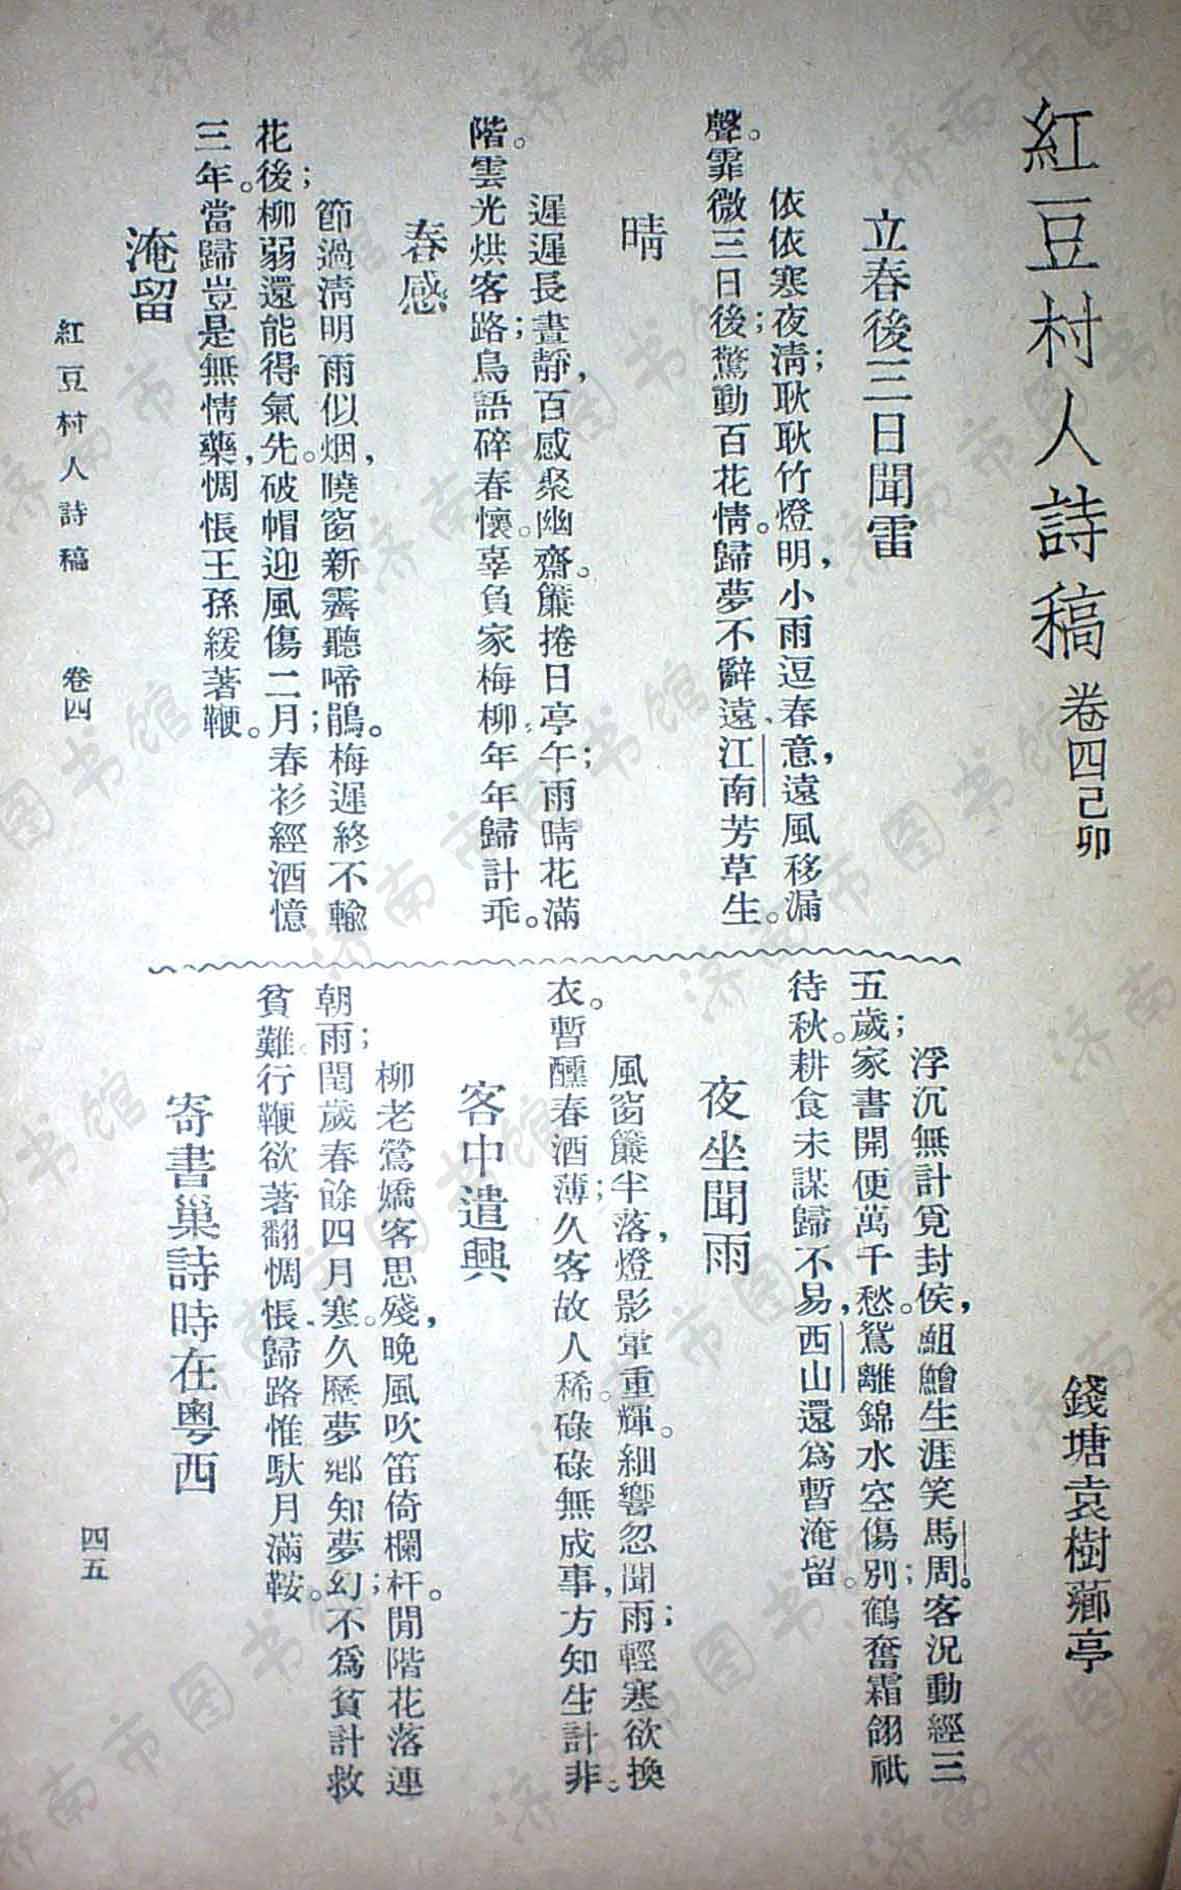 紅豆村人詩稿 卷四己卯
錢塘袁樹薌亭
立春後三日聞雷
依依寒夜淸；耿耿竹燈明，小雨逗春意，遠風移漏
聲。霏微三日後；驚動百花情。歸夢不辭遠、江南芳草生。
晴
遲遲長晝靜，百感聚幽齋。簾捲日亭午；雨晴花滿
階。雲光烘客路；鳥語碎春懷。辜負家梅柳、年年歸計乖。
春感
節過淸明雨似烟，曉窗新霽聽啼鵑。梅遲終不輸
花後；柳弱還能得氣先。破帽迎風傷二月；春衫經酒憶
三年。當歸豈是無情藥，惆悵王孫緩著鞭。
淹留
浮沉無計覓封侯，鉏鱠生涯笑馬周。客況動經三
五歲；家書開便萬千愁。鴛離錦水空傷別；鶴奮霜翎祇
待秋。耕食未謀歸不易，西山還爲暫淹留。
夜坐聞雨
風窗簾半落，燈影暈重輝。細響忽聞雨；輕寒欲換
衣。暫醺春酒薄；久客故人稀。碌碌無成事，方知生計非。
客中遣興
柳老鶯嬌客思殘，晚風吹笛倚欄杆。閒階花落連
朝雨；閏歲春餘四月寒。久歷夢鄉知夢幻；不爲貧計救
貧難。行鞭欲著翻惆悵、歸路惟馱月滿鞍。
寄書巢詩時在粤西
紅豆村人詩稿 卷四
四五
济南市图书馆